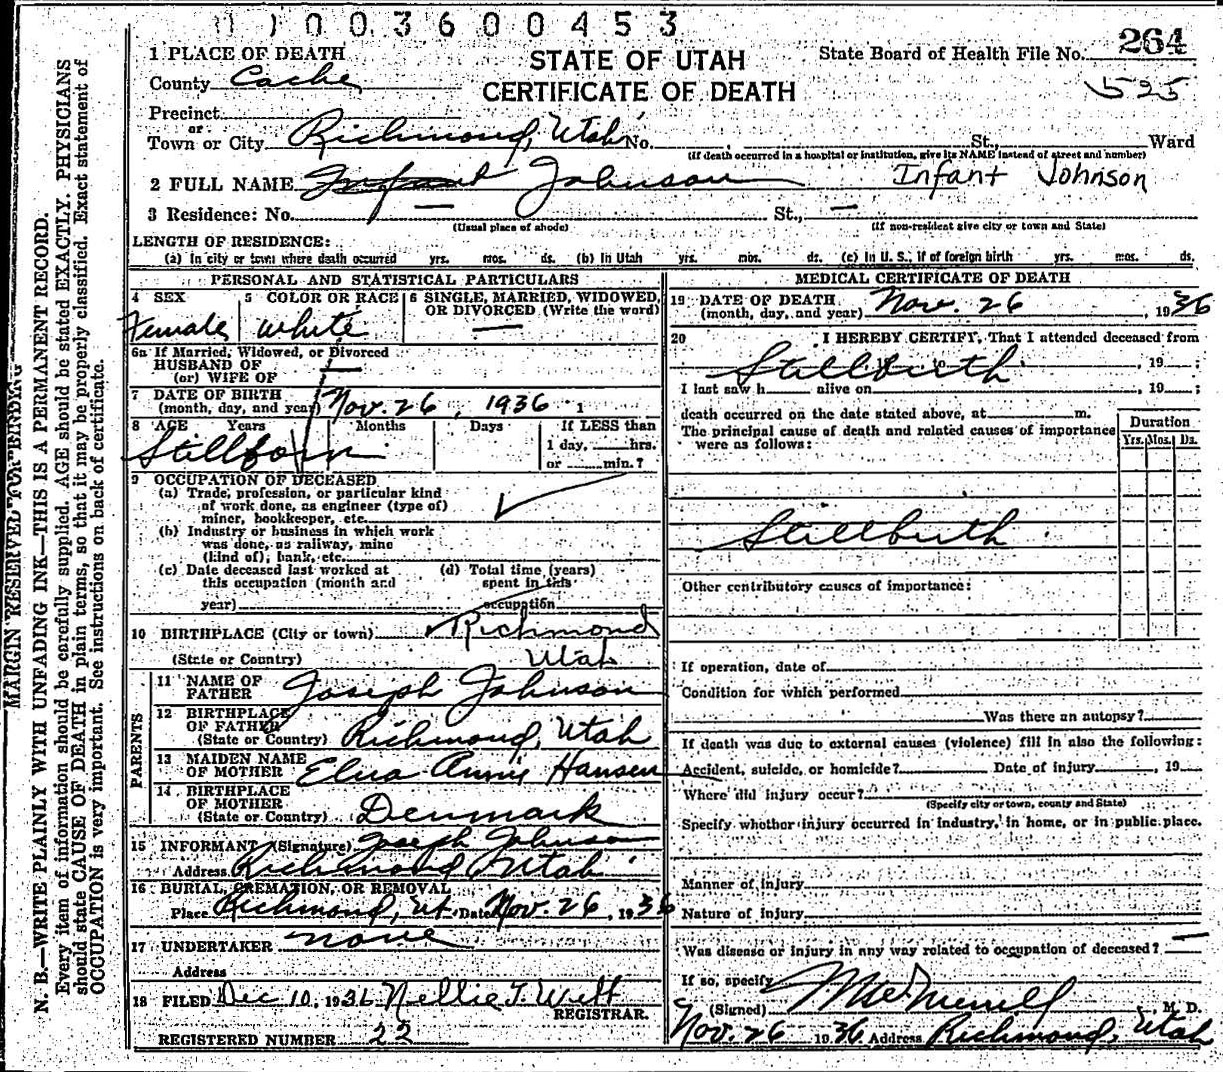 01003600453
1 PLACE OF DEATH
STATE OF UTAH
State Board of Health File No. 264
County Cache
CERTIFICATE OF DEATH
525
Precinct
or
Town or City Richmond, Utah No. St., Ward
(If death occurred in a hospital or institution, give its NAME instead of street and number)
2 FULL NAME Infant Johnson Infant Johnson
3 Residence: No. — St., —
(Usual place of abode) (If non-resident give city or town and State)
LENGTH OF RESIDENCE:
(a) In city or town where death occurred yrs. mos. ds. (b) In Utah yrs. mos. ds. (c) In U. S., if of foreign birth yrs. mos. ds.
PERSONAL AND STATISTICAL PARTICULARS
4 SEX 5 COLOR OR RACE 6 SINGLE, MARRIED, WIDOWED,
OR DIVORCED (Write the word)
Female white —
6a If Married, Widowed, or Divorced
HUSBAND OF
(or) WIFE OF
7 DATE OF BIRTH
(month, day, and year) Nov. 26, 1936
8 AGE Years Months Days If LESS than
1 day, hrs.
or min.?
Stillborn
9 OCCUPATION OF DECEASED
(a) Trade, profession, or particular kind
of work done, as engineer (type of)
miner, bookkeeper, etc.
(b) Industry or business in which work
was done, as railway, mine
(kind of), bank, etc.
(c) Date deceased last worked at
this occupation (month and
year)
(d) Total time (years)
spent in this
occupation
10 BIRTHPLACE (City or town) Richmond
(State or Country) Utah
PARENTS
11 NAME OF
FATHER Joseph Johnson
12 BIRTHPLACE
OF FATHER
(State or Country) Richmond, Utah
13 MAIDEN NAME
OF MOTHER Elna Annie Hansen
14 BIRTHPLACE
OF MOTHER
(State or Country) Denmark
15 INFORMANT (Signature) Joseph Johnson
Address Richmond, Utah
16 BURIAL, CREMATION, OR REMOVAL
Place Richmond, Ut. Date Nov. 26, 1936
17 UNDERTAKER none
Address
18 FILED Dec 10, 1936 Nellie T. Welt
REGISTRAR.
REGISTERED NUMBER 22
MEDICAL CERTIFICATE OF DEATH
19 DATE OF DEATH
(month, day, and year) Nov. 26, 1936
20 I HEREBY CERTIFY, That I attended deceased from
Stillbirth, 19 ;
I last saw h alive on , 19 ;
death occurred on the date stated above, at m.
The principal cause of death and related causes of importance
were as follows:
Duration
Yrs. Mos. Ds.
Stillbirth
Other contributory causes of importance:
If operation, date of
Condition for which performed
Was there an autopsy?
If death was due to external causes (violence) fill in also the following:
Accident, suicide, or homicide? Date of injury , 19
Where did injury occur?
(Specify city or town, county and State)
Specify whether injury occurred in industry, in home, or in public place.
Manner of injury
Nature of injury
Was disease or injury in any way related to occupation of deceased? —
If so, specify
(Signed) M. D.
Nov. 26 1936 Address Richmond, Utah
MARGIN RESERVED FOR BINDING
N. B.—WRITE PLAINLY WITH UNFADING INK—THIS IS A PERMANENT RECORD.
Every item of information should be carefully supplied. AGE should be stated EXACTLY. PHYSICIANS
should state CAUSE OF DEATH in plain terms, so that it may be properly classified. Exact statement of
OCCUPATION is very important. See instructions on back of certificate.